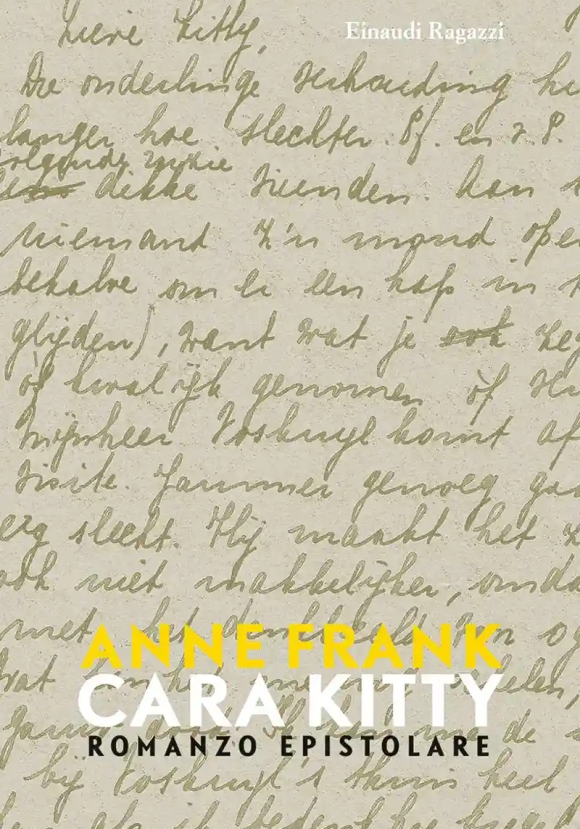 Einaudi Ragazzi
Lieve Kitty,
De onderlinge verhouding hi
langer hoe slechter. Pf. en v. P.
volgende
dikke vrienden. Aan
niemand z'n mond ope
behalve om er een hap in t
glijden), want wat je ook ze
òf kwalijk genomen òf
Mijnheer Voskuyl komt af
visite. Jammer genoeg gaa
erg slecht. Hij maakt het z
ook niet makkelijker, omda
met het
wat
by Voskuyl's thuis heel
ANNE FRANK
CARA KITTY
ROMANZO EPISTOLARE